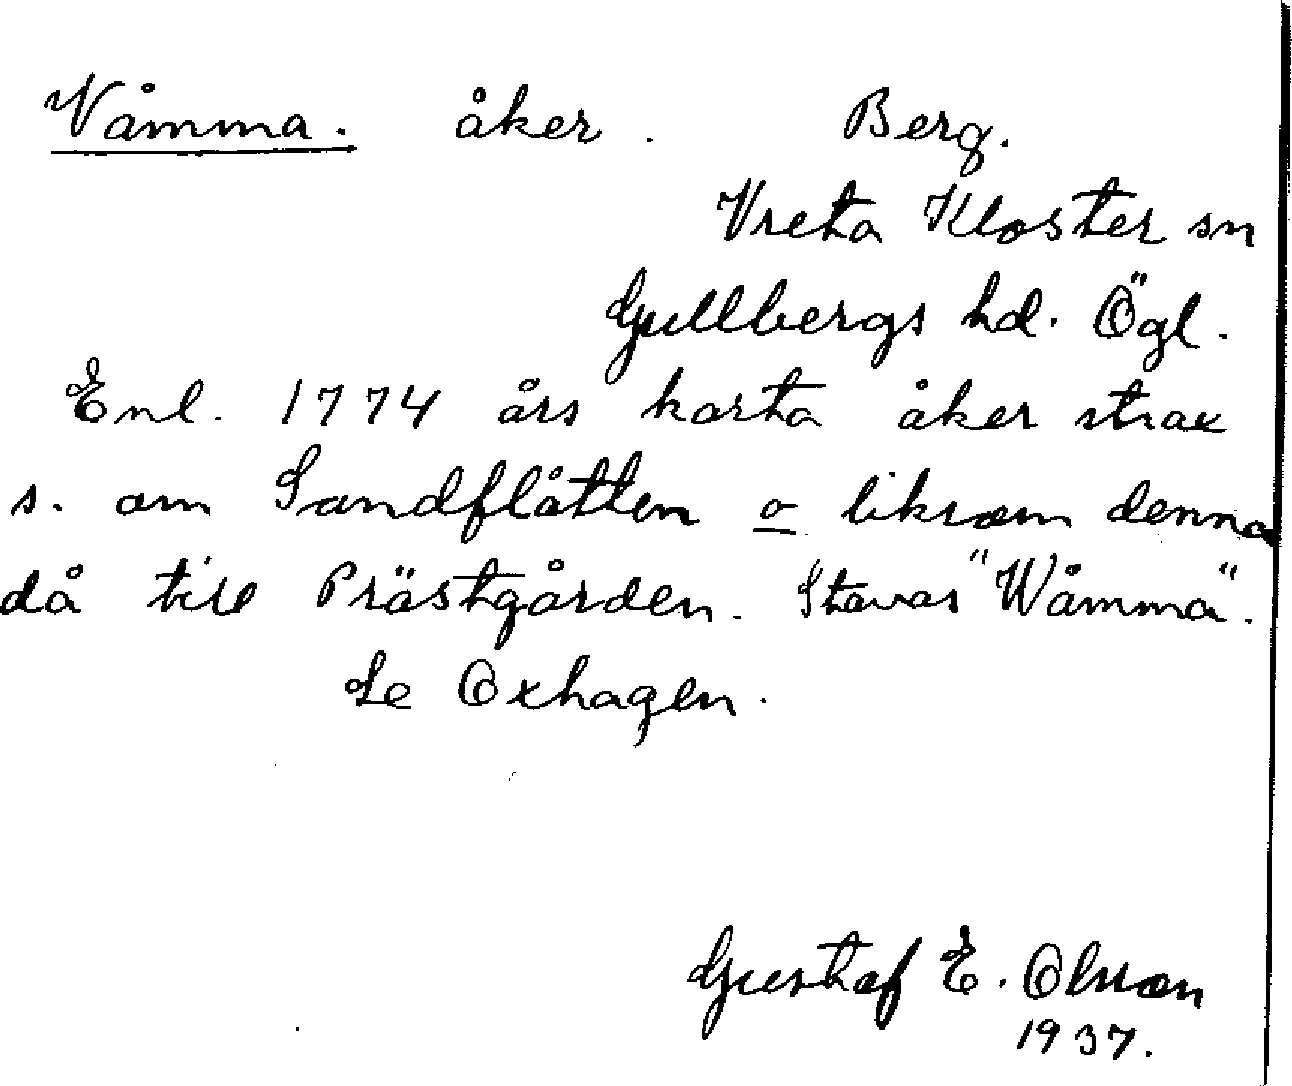 Våmma. åker. Berg.
Vreta Kloster sn
Gullbergs hd. Ögl.
Enl. 1774 års karta åker strax
s. om Sandflåtten o liksom denna
då till Prästgården. Stavas "Wåmma".
Se Oxhagen.
Gustaf E. Olsson
1937.